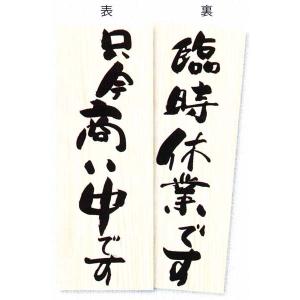 表
只今商い中です
裏
臨時休業です